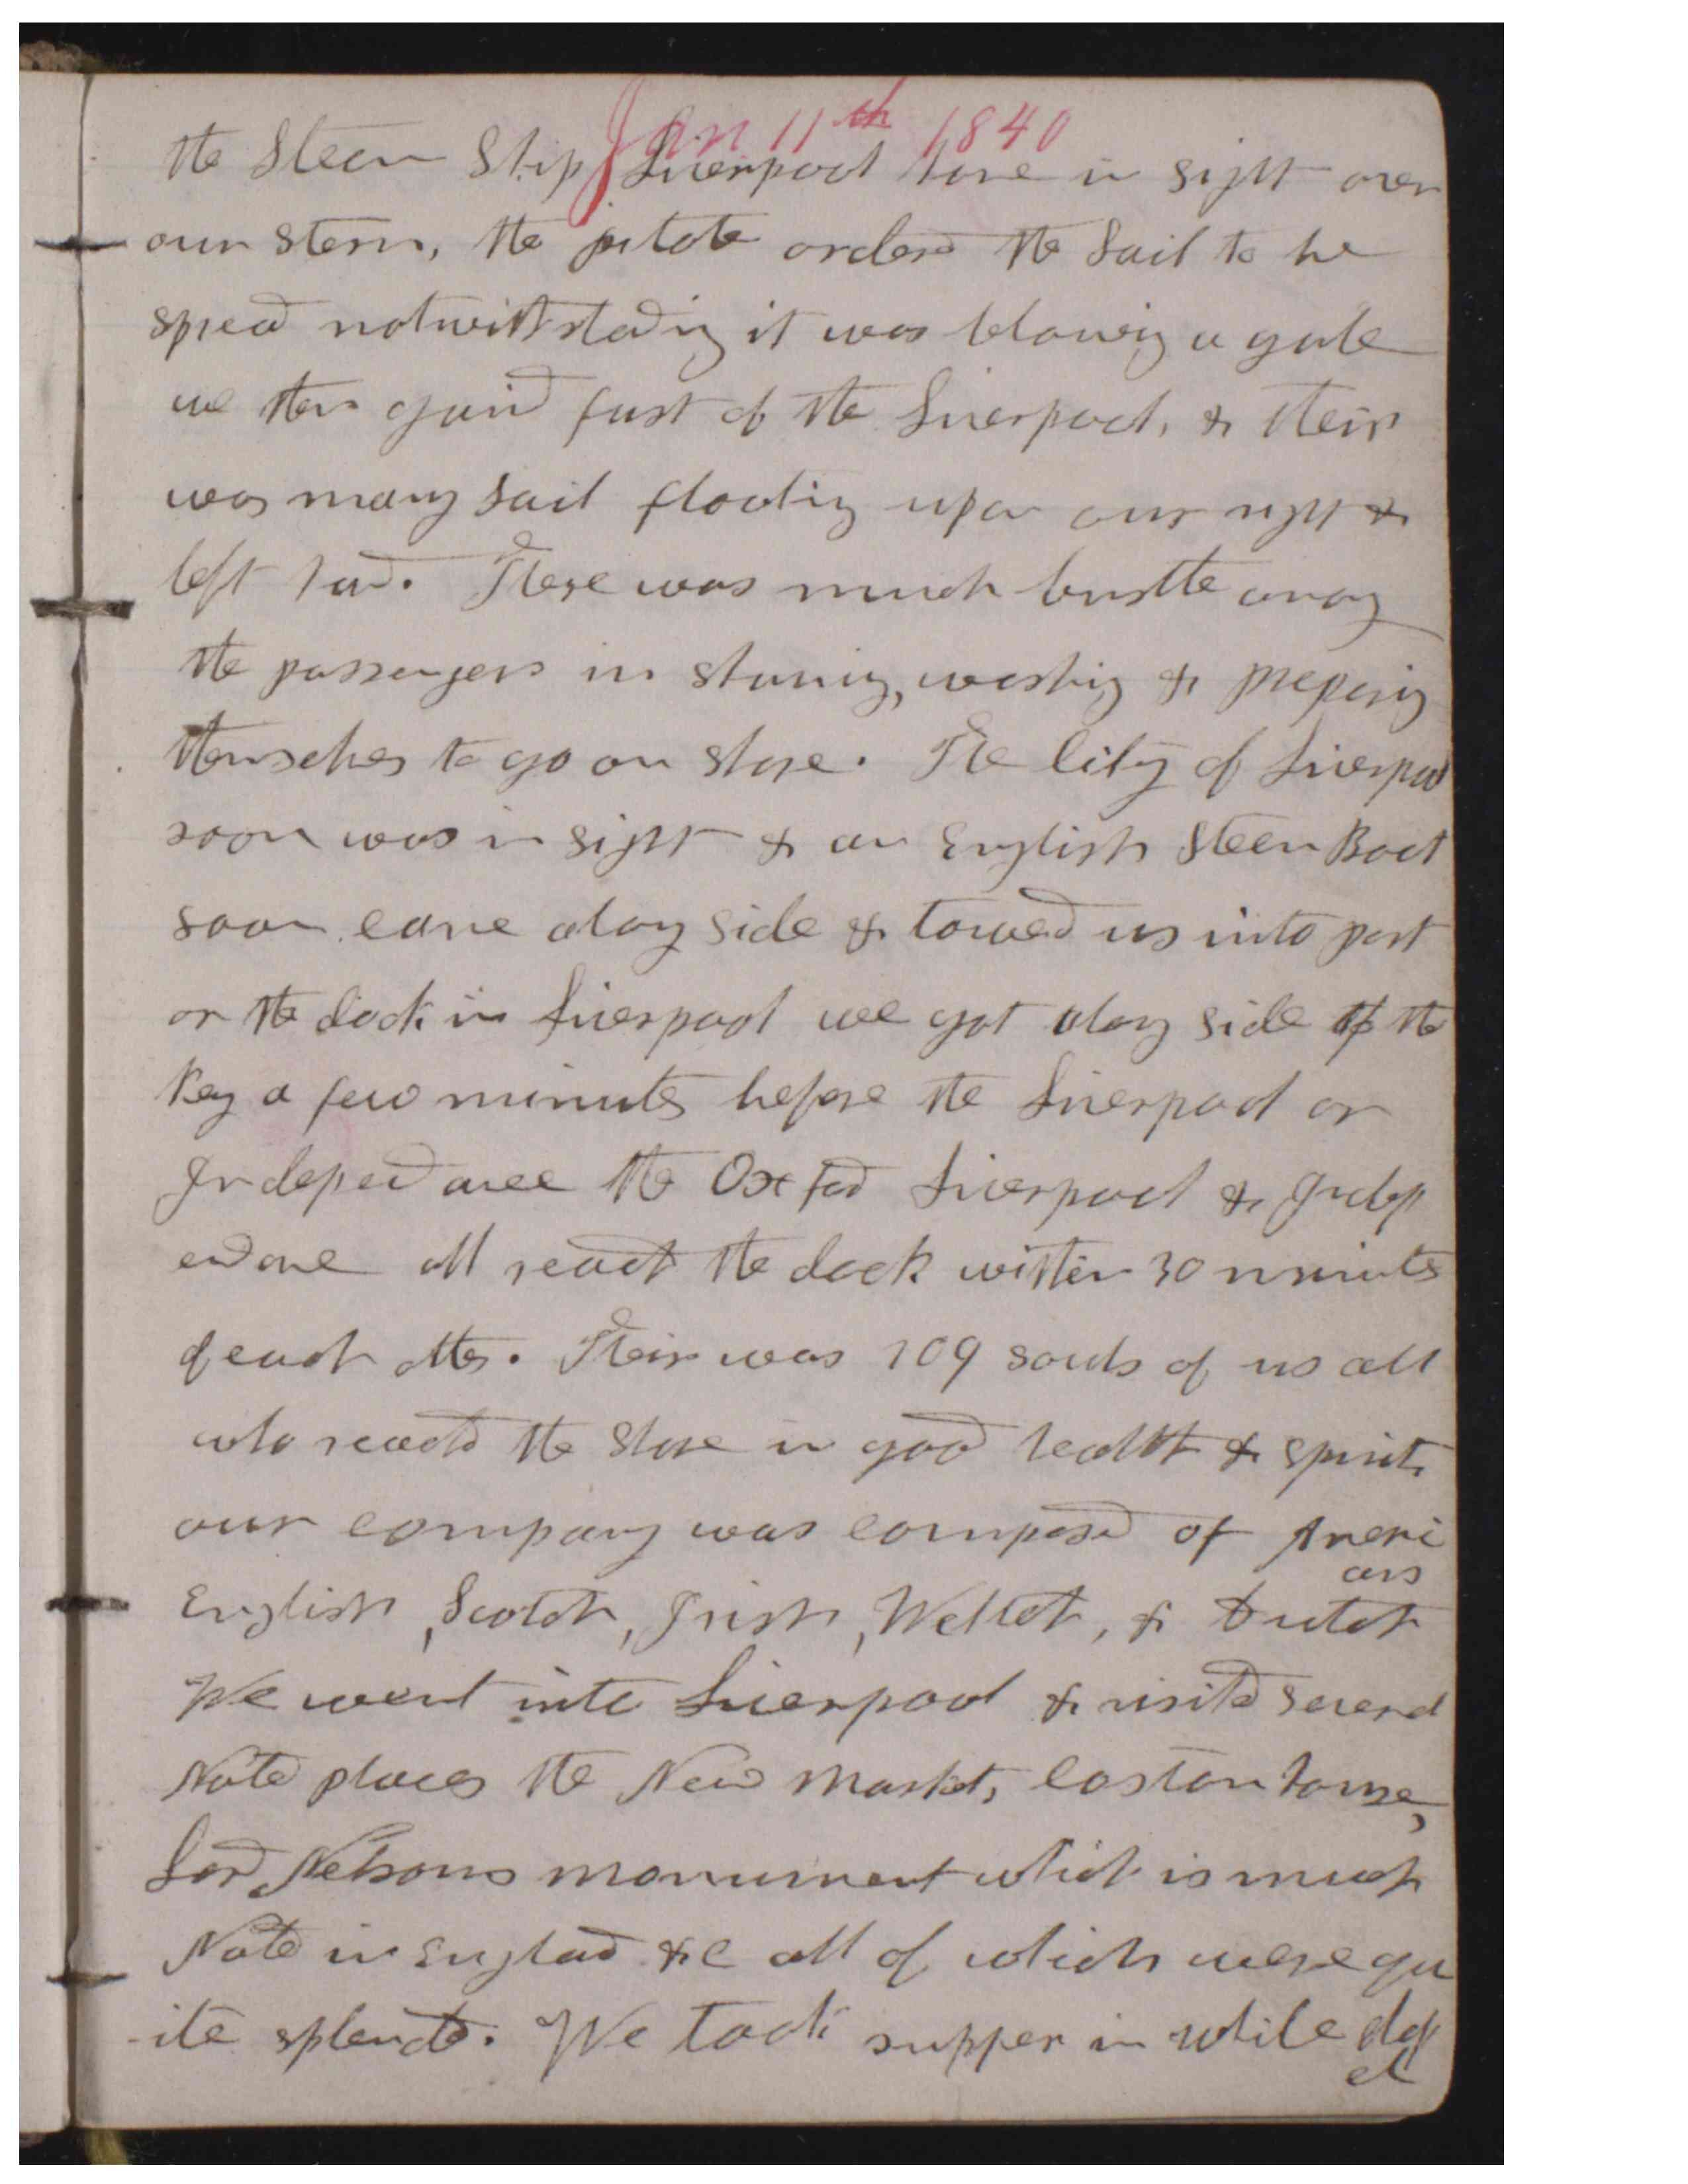 Jan 11th 1840
the Steem Ship Liverpool hove in sight over
our stern, the pilote orderd the sail to be
spread notwithstading it was blowing a gale
we then gaind fast of the Liverpool, & their
was many sail floating upon our right &
left hand. There was much bustle among
the passengers in shaving, washing & prepering
themselves to go on shore. The City of Liverpool
soon was in sight & an English Steem Boat
soon came along side & towed us into port
or the dock in Liverpool we got along side of the
Key a few minutes before the Liverpool or
Independance the Oxford Liverpool & Indep
endance all reach the dock within 30 minutes
of each other. Their was 109 souls of us all
who reachd the shore in good health & spirits
our company was composed of Ameri
cans
English, Scotch, Irish, Weltch, & Dutch
We went into Liverpool & visitd several
Noted places the New Market, Coston house,
Lord Nelsons monument which is much
Noted in England &c all of which were qu
-ite splended. We took supper in while chap
el